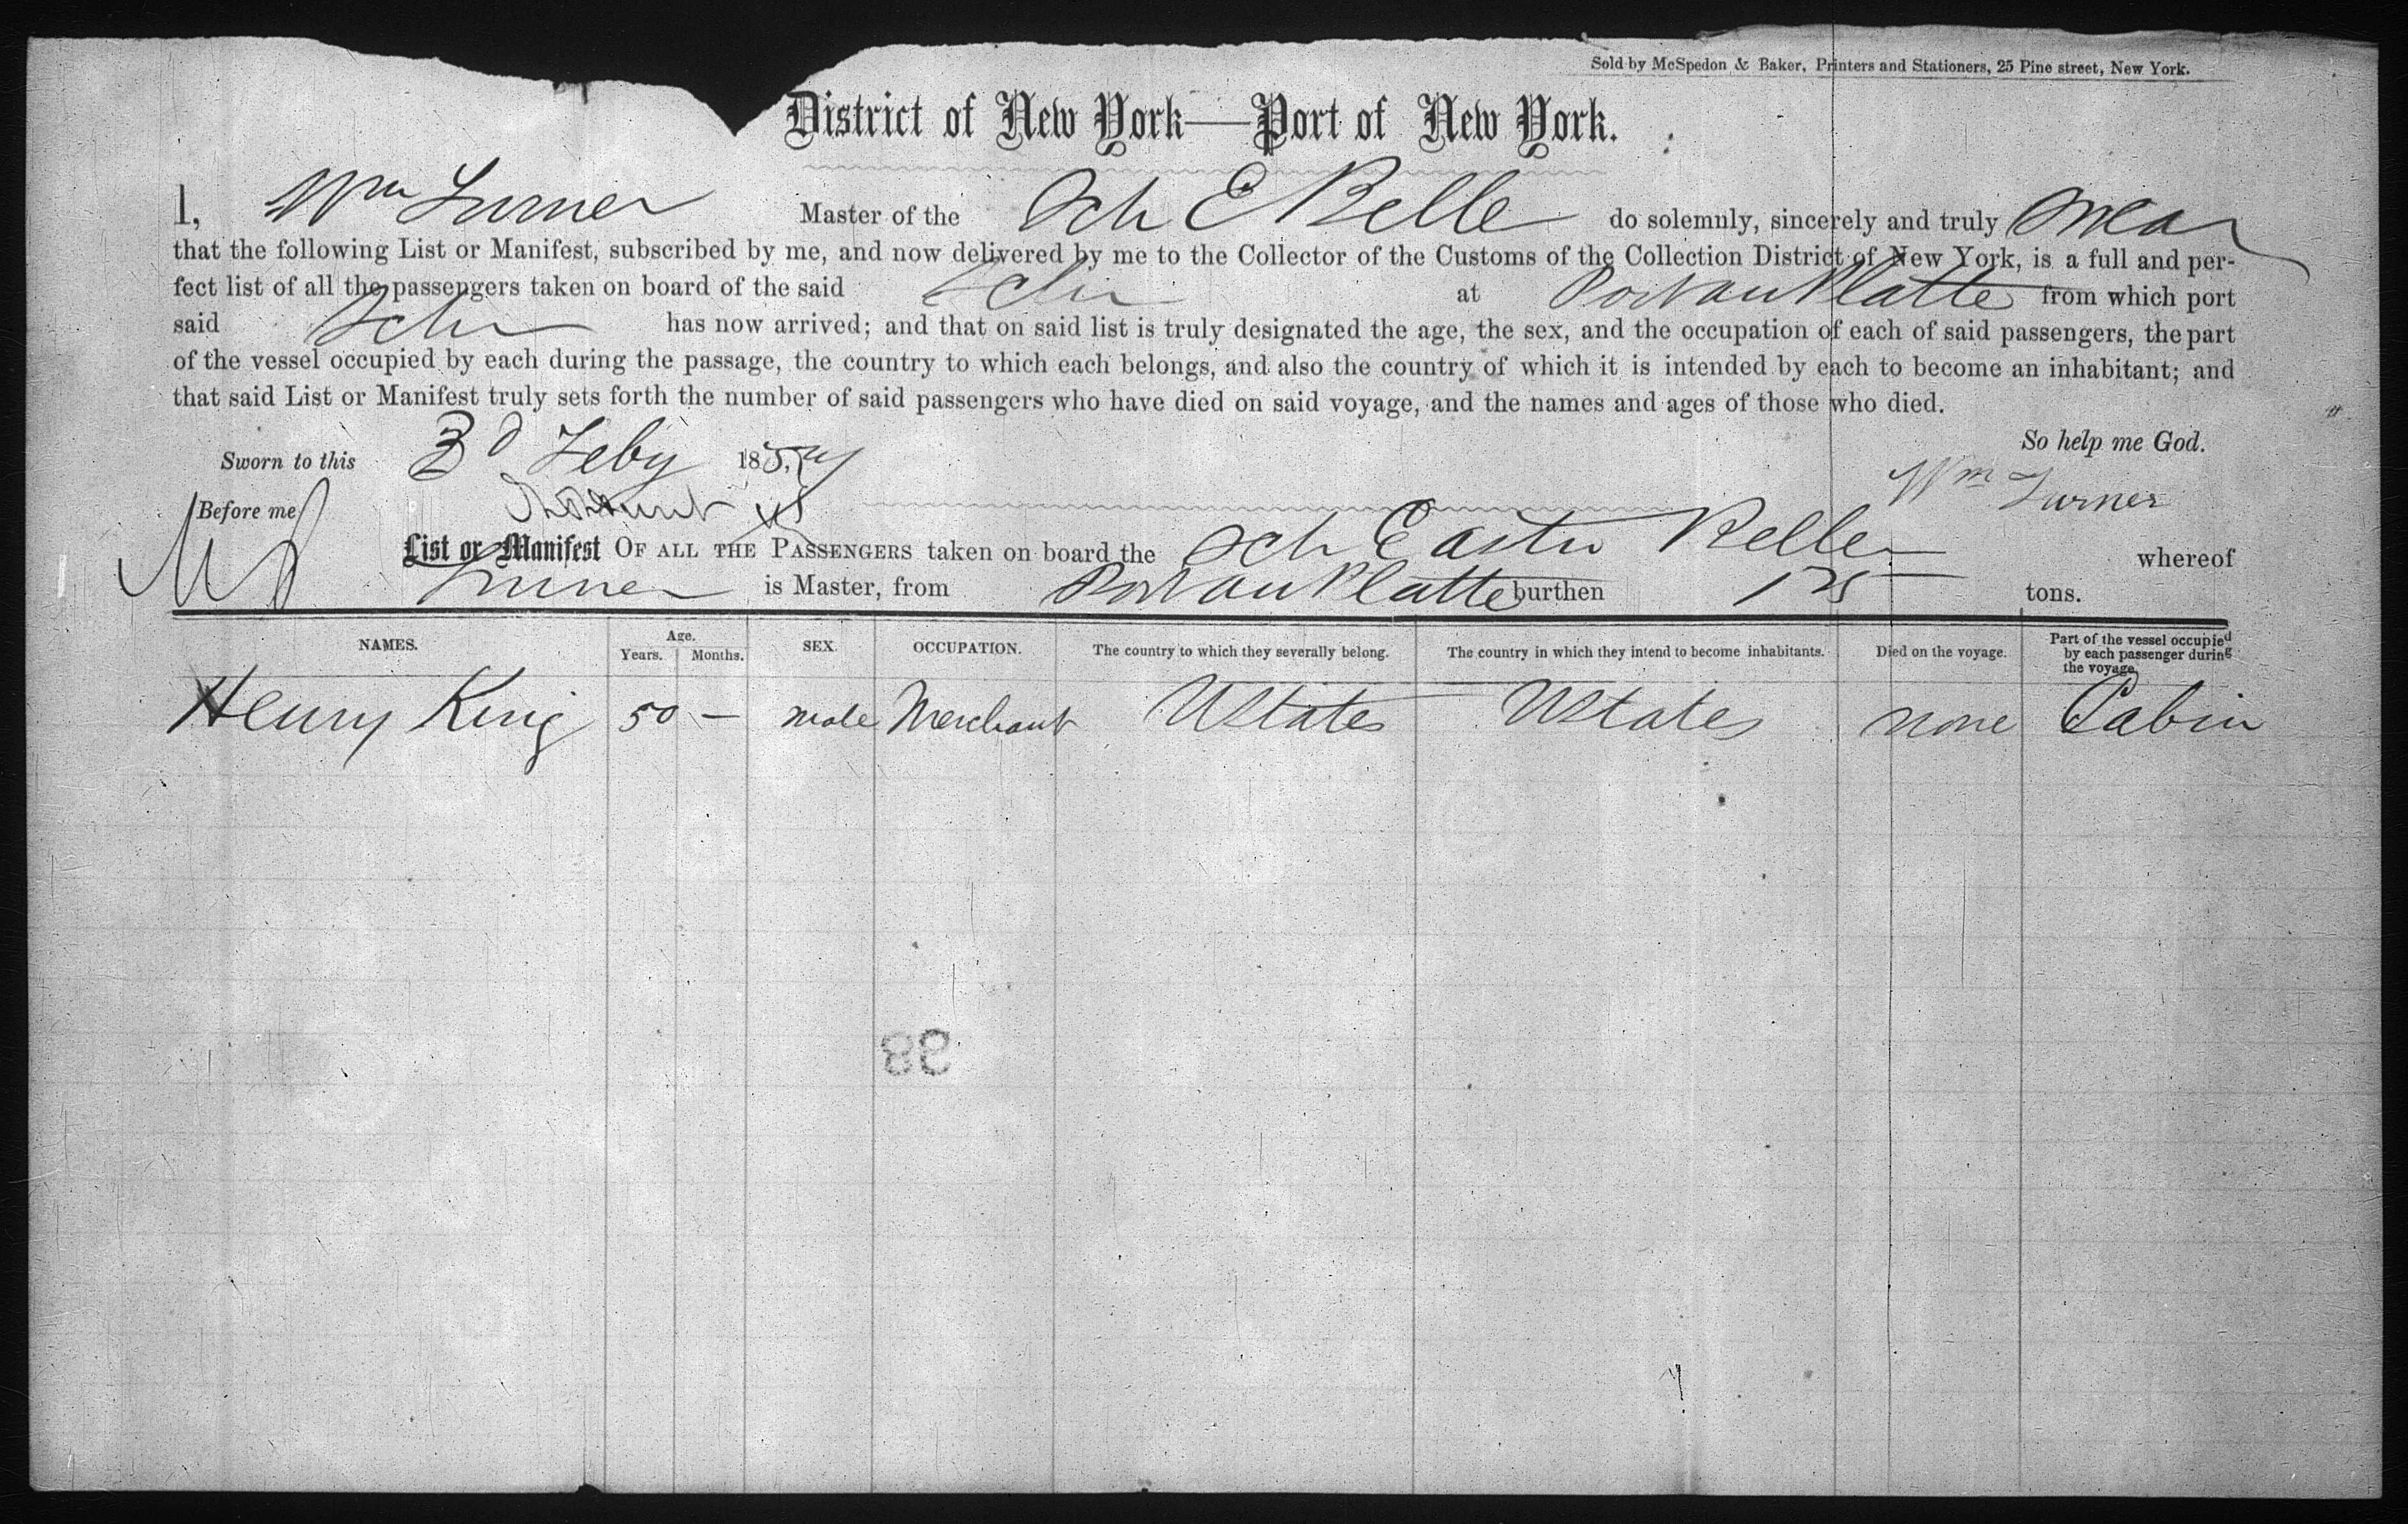 Sold by McSpedon & Baker, Printers and Stationers, 25 Pine street, New York.
District of New York—Port of New York.
I, Wm Turner Master of the Sch E Belle do solemnly, sincerely and truly swear
that the following List or Manifest, subscribed by me, and now delivered by me to the Collector of the Customs of the Collection District of New York, is a full and per-
fect list of all the passengers taken on board of the said Schr at Port au Platte from which port
said Schr has now arrived; and that on said list is truly designated the age, the sex, and the occupation of each of said passengers, the part
of the vessel occupied by each during the passage, the country to which each belongs, and also the country of which it is intended by each to become an inhabitant; and
that said List or Manifest truly sets forth the number of said passengers who have died on said voyage, and the names and ages of those who died.
So help me God.
Sworn to this 3d Feby 185
Wm Turner
Before me
List or Manifest OF ALL THE PASSENGERS taken on board the Sch Eastern Belle whereof
Turner is Master, from Port au Platte burthen tons.
NAMES. Age. Years. Months. SEX. OCCUPATION. The country to which they severally belong. The country in which they intend to become inhabitants. Died on the voyage. Part of the vessel occupied by each passenger during the voyage.
Henry King 50 — male Merchant UStates UStates none Cabin
98